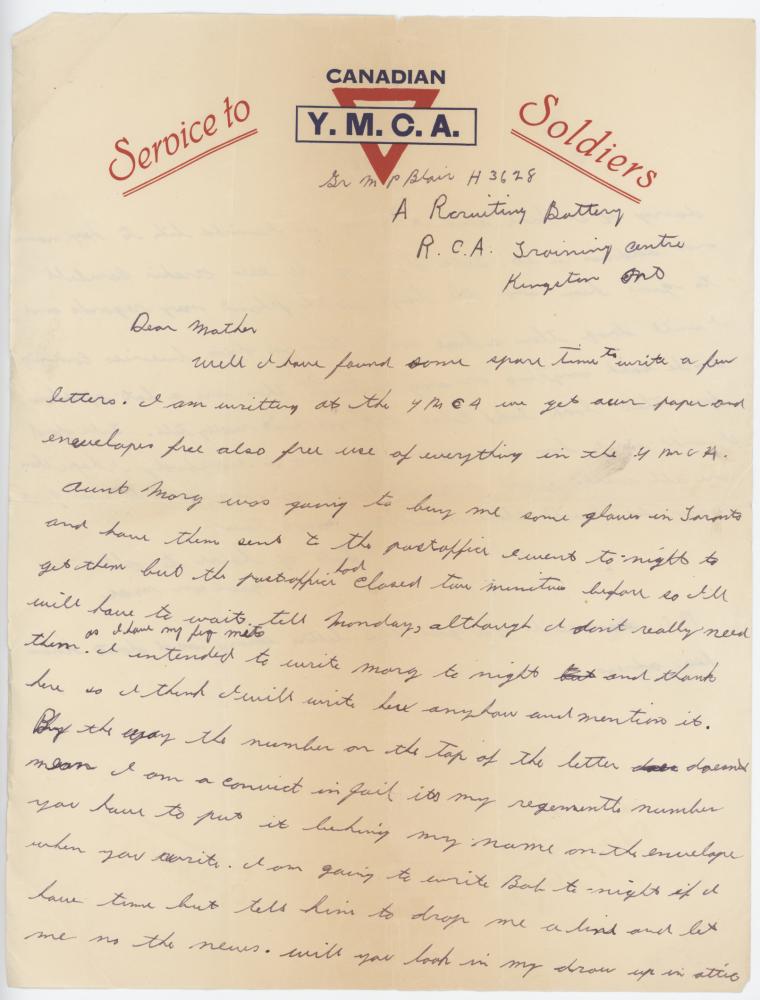 CANADIAN
Service to Y. M. C. A. Soldiers
Gr M P Blair H 3628
A Recruiting Battery
R. C. A. Training centre
Kingston Ont
Dear Mother
Well I have found some spare time to write a few
letters. I am writting at the Y M C A we get our paper and
envelopes free also free use of everything in the Y M C A.
Aunt Marg was going to buy me some gloves in Toronto
and have them sent to the postoffice I went to-night to
get them but the postoffice had closed two minites before so I'll
will have to wait till Monday, although I don't really need
them. as I have my mits I intended to write Marg to night but and thank
her so I think I will write her anyhow and mention it.
By the way the number on the top of the letter does doesnt
mean I am a convict in jail its my regements number
you have to put it behing my name on the envelope
when you write. I am going to write Bob to-night if I
have time but tell him to drop me a line and let
me no the news. will you look in my draw up in attic